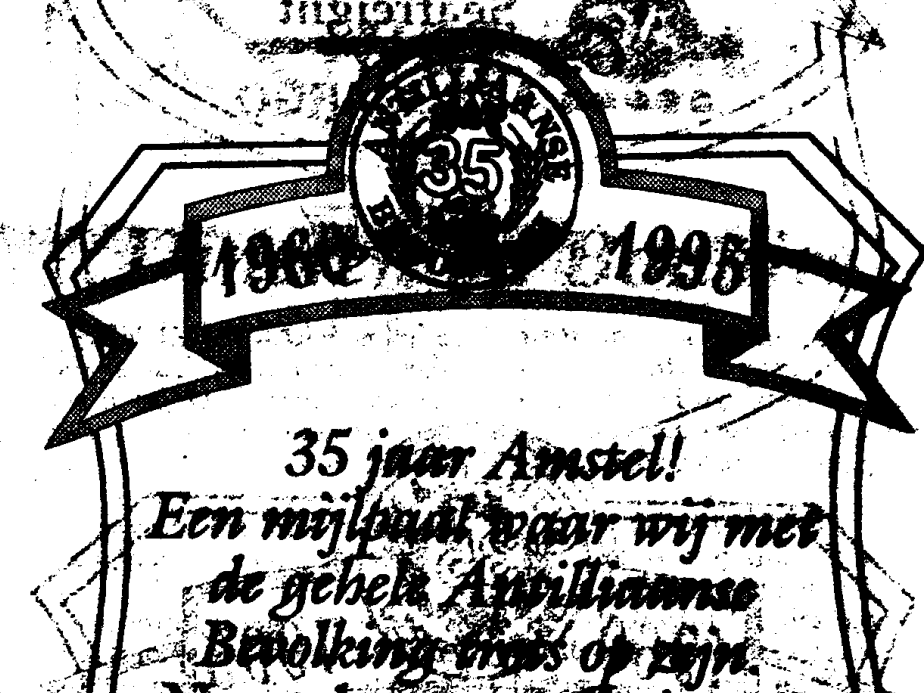 ANTILLIAANSE
35
1960 1995
35 jaar Amstel!
Een mijlpaal waar wij met
de gehele Antilliaanse
Bevolking trots op zijn.